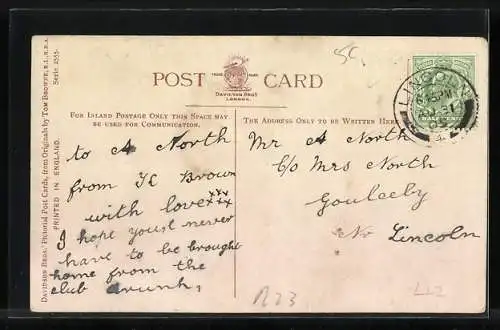 POST CARD
TRADE MARK
DAVIDSON BROS
LONDON.
FOR INLAND POSTAGE ONLY THIS SPACE MAY
BE USED FOR COMMUNICATION.
to A North
from K Brown
with love xxx
I hope you'st never
have to be brought
home from the
club drunk,
THE ADDRESS ONLY TO BE WRITTEN HERE
Mr A North
C/o Mrs North
Gouleeby
Nr Lincoln
LINCOLN
HALFPENNY
R23
LL2
DAVIDSON BROS.' PICTORIAL POST CARDS, FROM ORIGINALS BY TOM BROWNE, R.I., R.B.A.
SERIE 2535-
PRINTED IN ENGLAND.